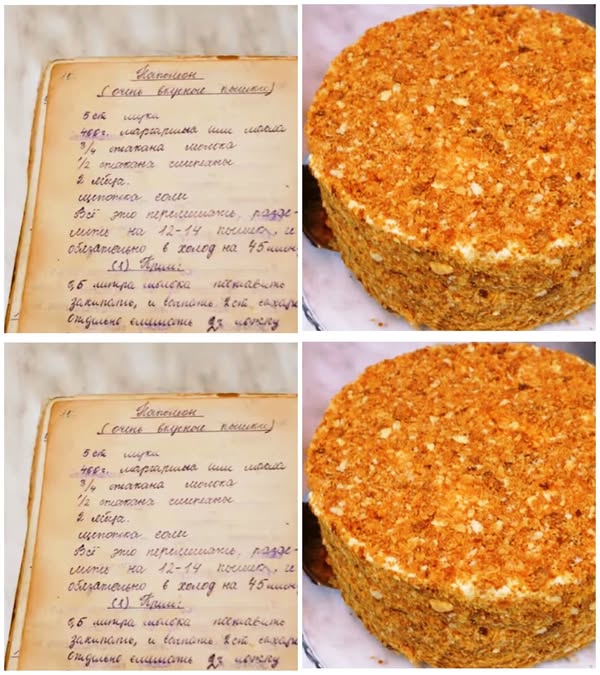 Наполеон
(очень вкусное пышки)
5 ст муки
400г. маргарина или масла
3/4 стакана молока
1/2 стакана сметаны
2 яйца.
щепотка соли
Всё это перемешать, разде-
лить на 12-14 пышек, и
обязательно в холод на 45 мин
(1) Крем:
0,5 литра молока поставить
закипать, и всыпать 2 ст. сахара
Отдельно смешать ложку
Наполеон
(очень вкусное пышки)
5 ст муки
400г. маргарина или масла
3/4 стакана молока
1/2 стакана сметаны
2 яйца.
щепотка соли
Всё это перемешать, разде-
лить на 12-14 пышек, и
обязательно в холод на 45 мин
(1) Крем:
0,5 литра молока поставить
закипать, и всыпать 2 ст. сахара
Отдельно смешать ложку